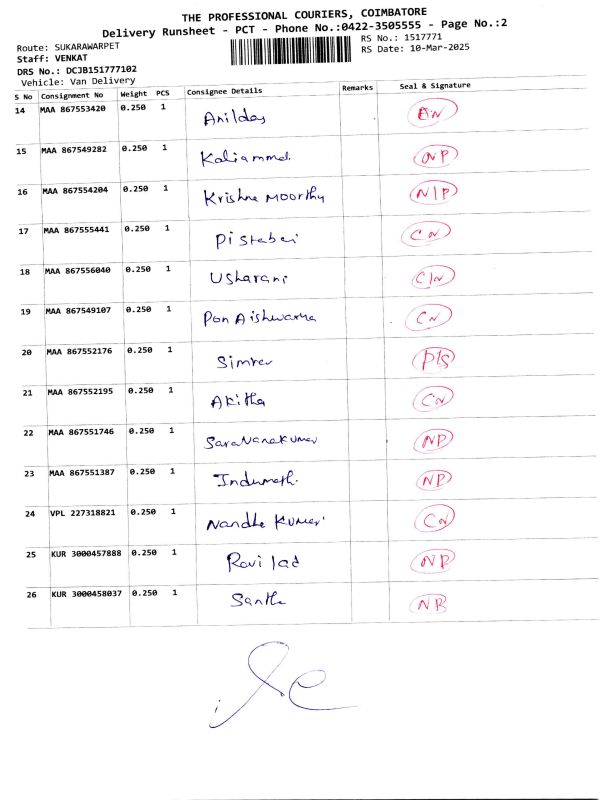 THE PROFESSIONAL COURIERS, COIMBATORE
Delivery Runsheet - PCT - Phone No.:0422-3505555 - Page No.:2
Route: SUKARAWARPET
RS No.: 1517771
Staff: VENKAT
RS Date: 10-Mar-2025
DRS No.: DCJB151777102
Vehicle: Van Delivery
S No Consignment No Weight PCS Consignee Details Remarks Seal & Signature
14 MAA 867553420 0.250 1 Anildas
15 MAA 867549282 0.250 1 Kaliammal NP
16 MAA 867554204 0.250 1 Krishna Moorthy N/P
17 MAA 867555441 0.250 1 Pistabai CN
18 MAA 867556040 0.250 1 Usharani C/N
19 MAA 867549107 0.250 1 Pon Aishwarya CN
20 MAA 867552176 0.250 1 Simran P/S
21 MAA 867552195 0.250 1 Akitha CN
22 MAA 867551746 0.250 1 Saravanakumar NP
23 MAA 867551387 0.250 1 Indumathi NP
24 VPL 227318821 0.250 1 Nandha Kumar CN
25 KUR 3000457888 0.250 1 Ravi lad NP
26 KUR 3000458037 0.250 1 Santha NP